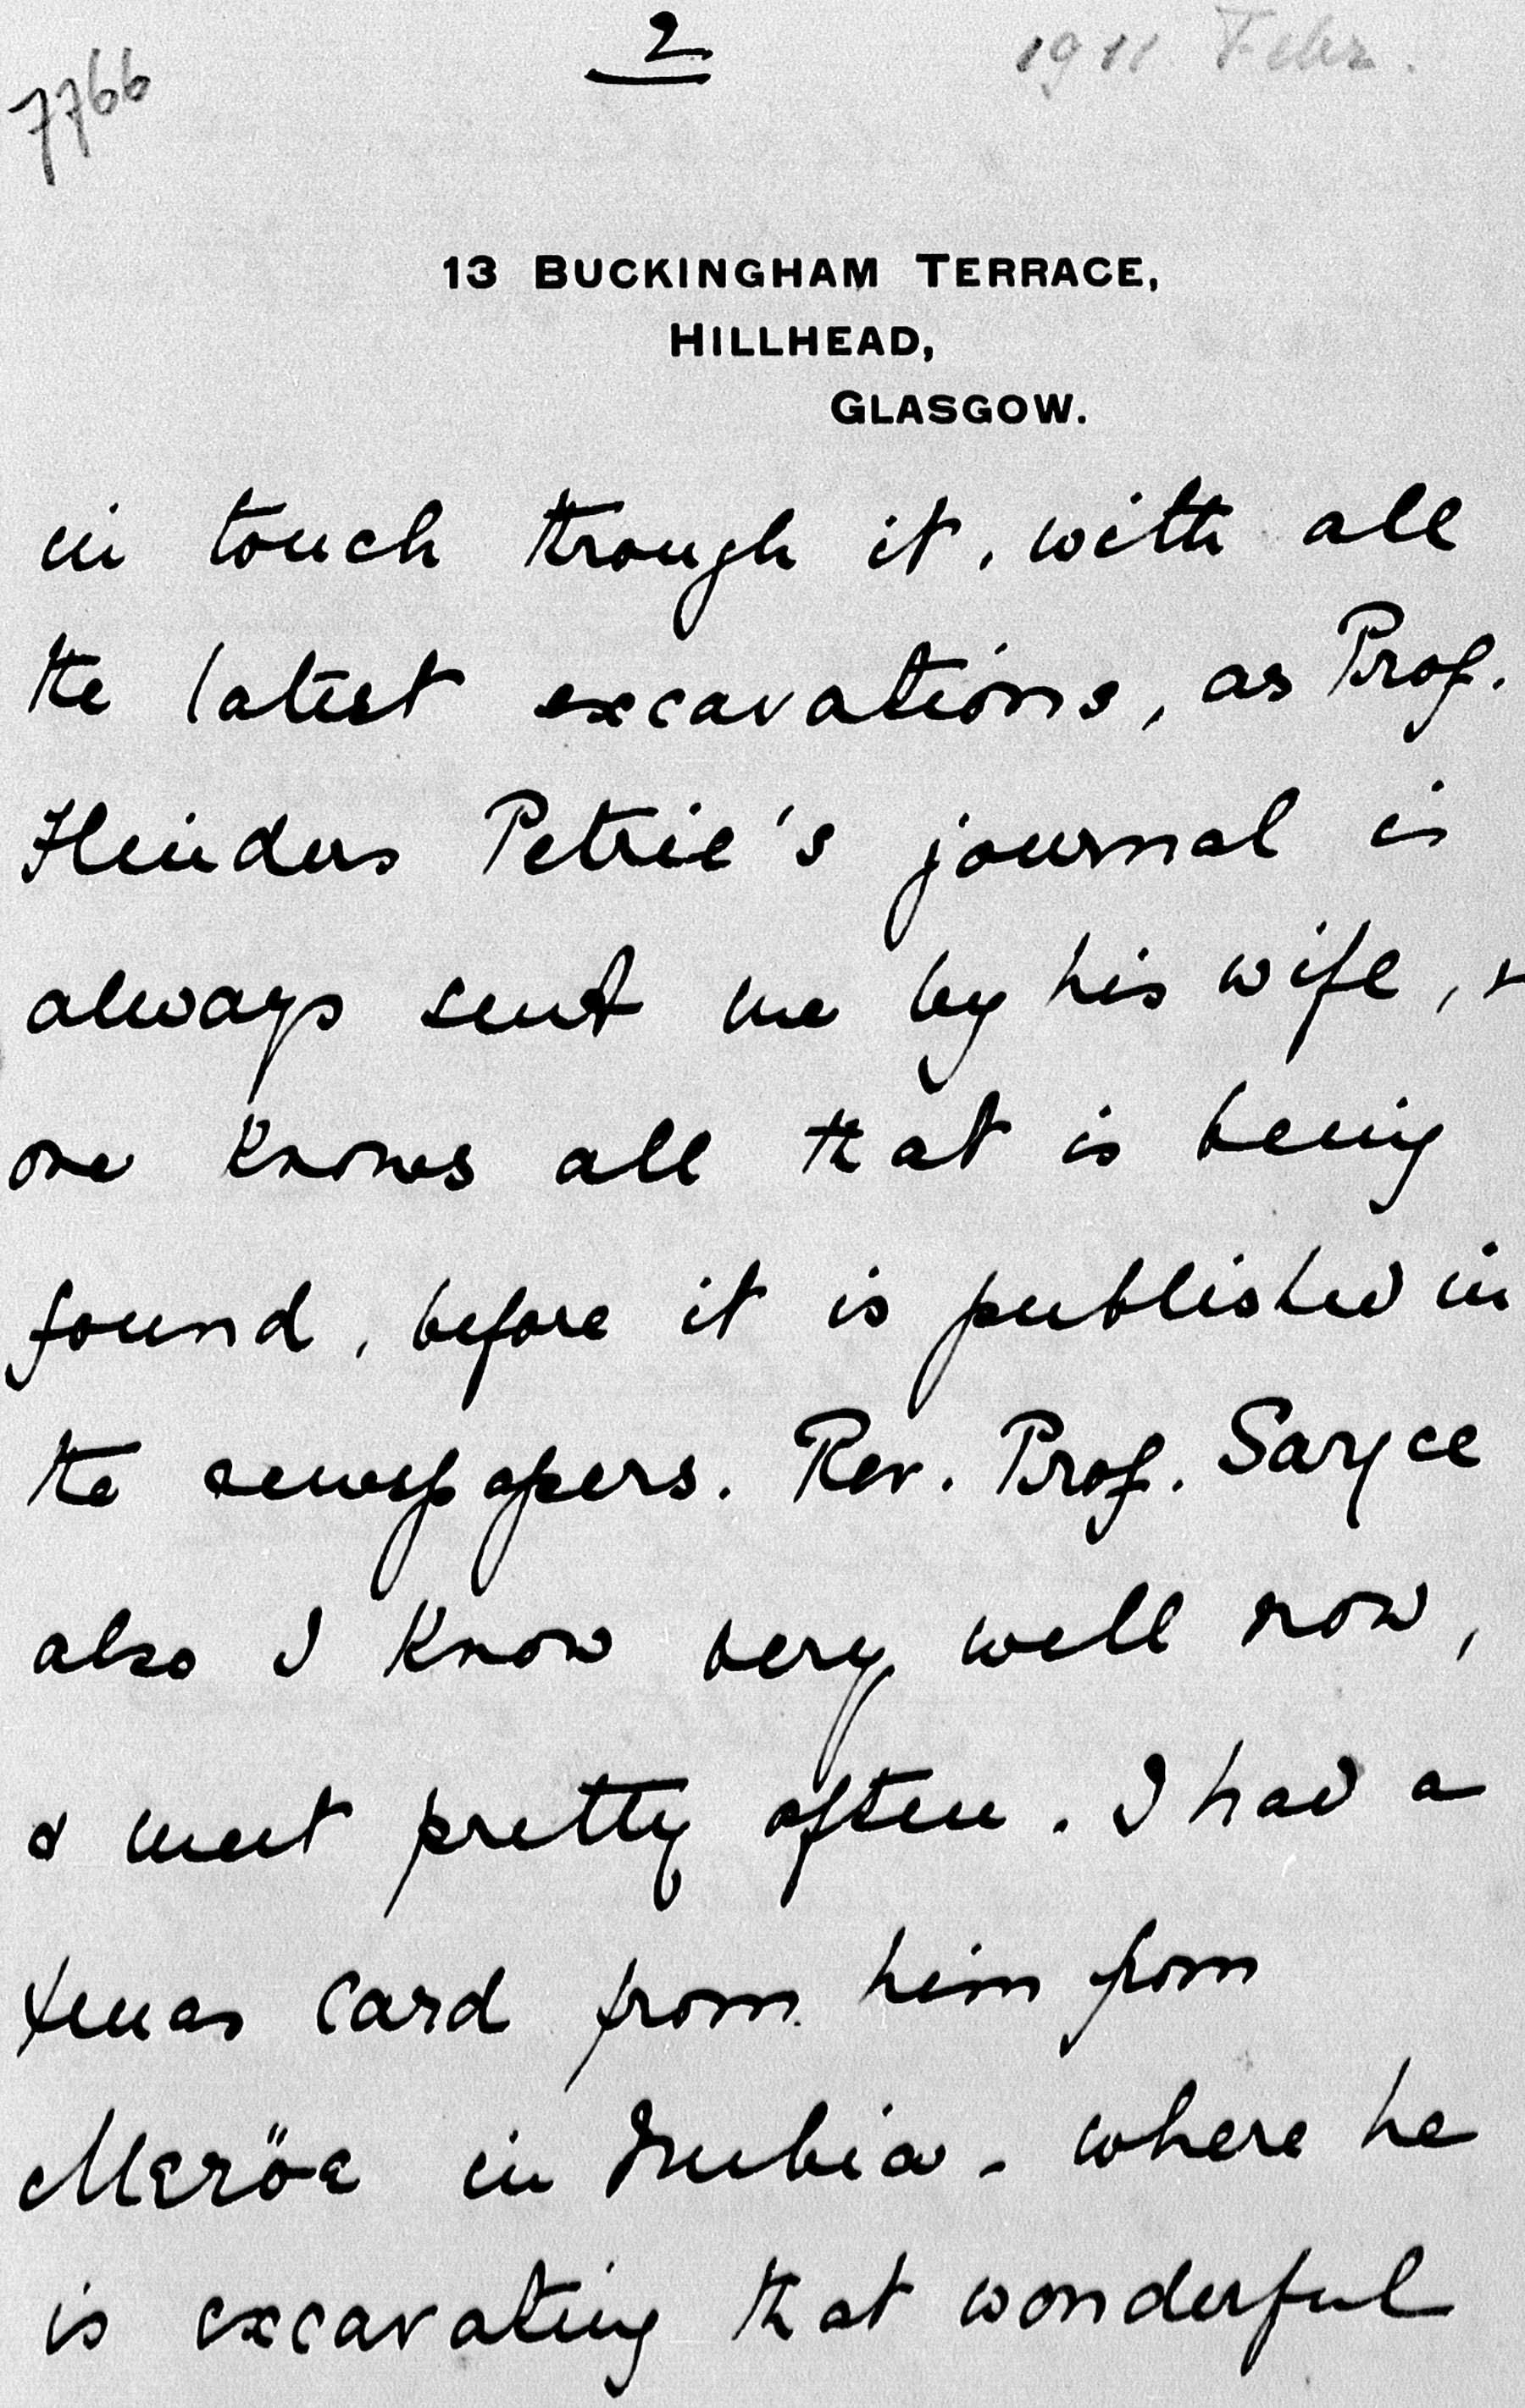 2
1911 Febr.
7766
13 BUCKINGHAM TERRACE,
HILLHEAD,
GLASGOW.
in touch through it, with all
the latest excavations, as Prof.
Flinders Petrie's journal is
always sent me by his wife, &
one knows all that is being
found, before it is published in
the newspapers. Rev. Prof. Sayce
also I know very well now,
& meet pretty often. I had a
Xmas card from him from
Meröe in Nubia - where he
is excavating that wonderful